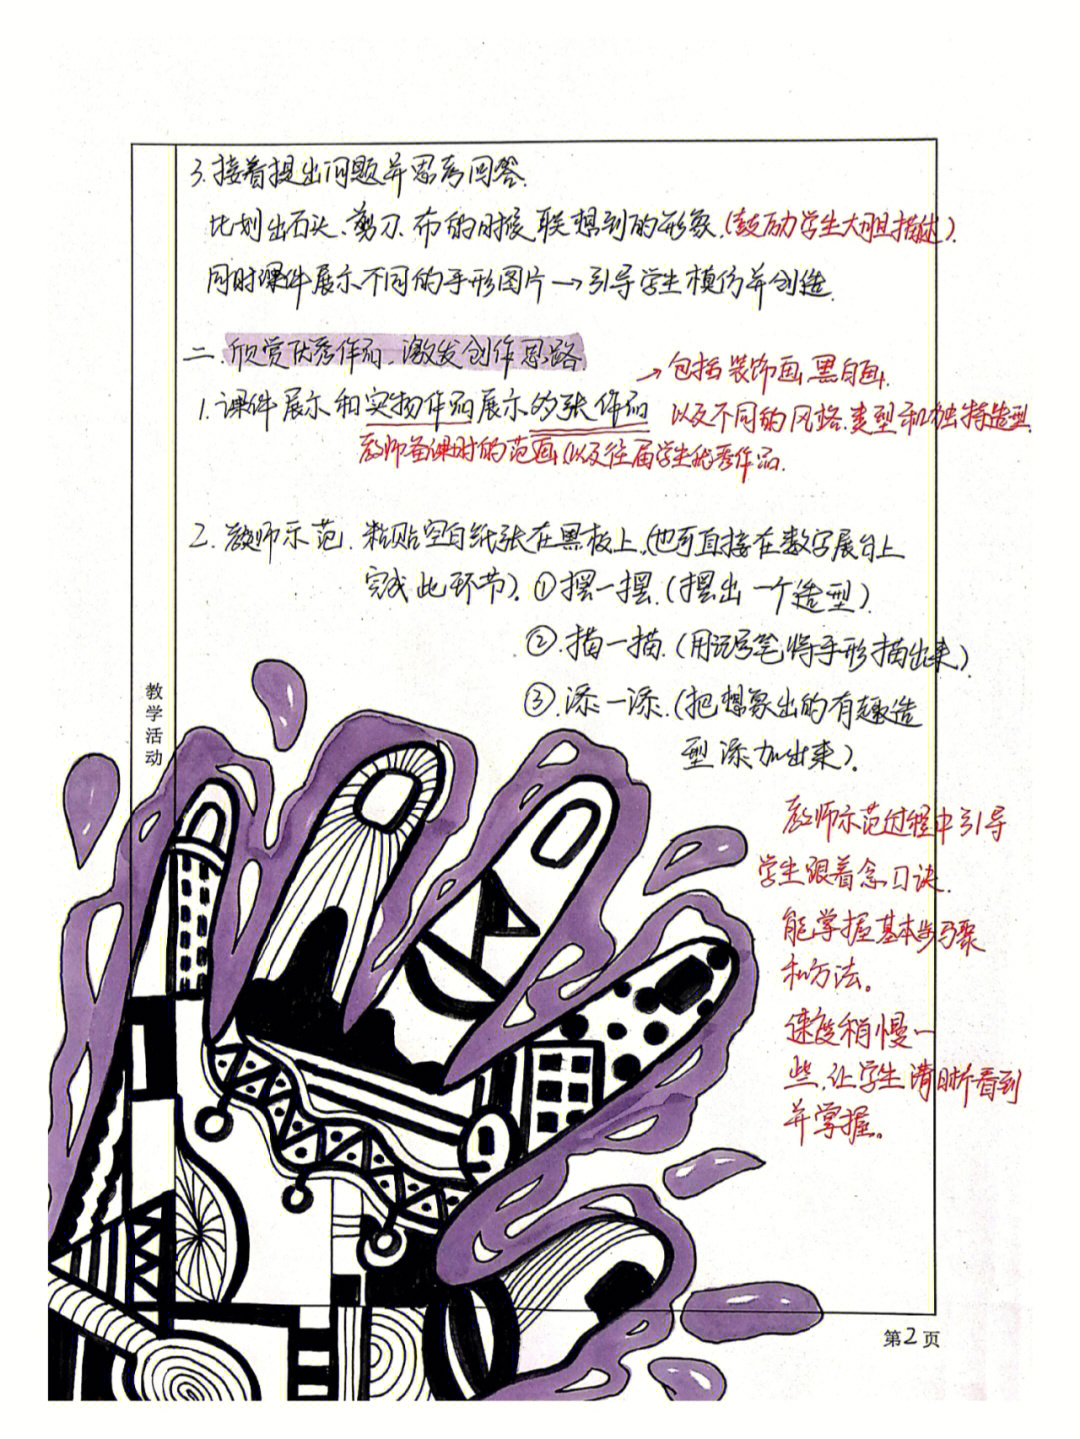 3.接着提出问题并思考回答.
比划出石头、剪刀、布的时候联想到的形象.(鼓励学生大胆描述).
同时课件展示不同的手形图片→引导学生模仿并创造.
二.欣赏优秀作品,激发创作思路
→包括装饰画,黑白画.
1.课件展示和实物作品展示的张作品
以及不同的风格.类型和独特造型.
教师备课时的范画,以及往届学生优秀作品.
2.教师示范.粘贴空白纸张在黑板上,(也可直接在数字展台上
完成此环节).①摆一摆.(摆出一个造型).
②.描一描.(用记号笔将手形描出来)
③.添一添.(把想象出的有趣造
型添加出来).
教学活动
教师示范过程中引导
学生跟着念口诀.
能掌握基本步骤
和方法。
速度稍慢一
些,让学生清晰看到
并掌握。
第2页